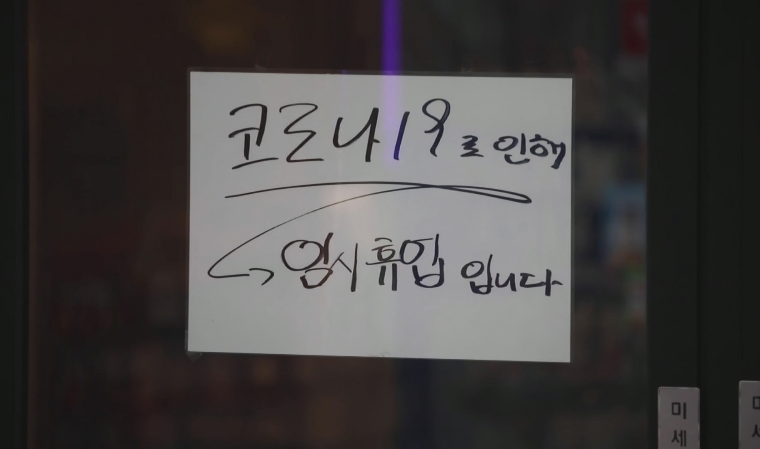 코로나19로 인해
임시휴업 입니다
미세
미